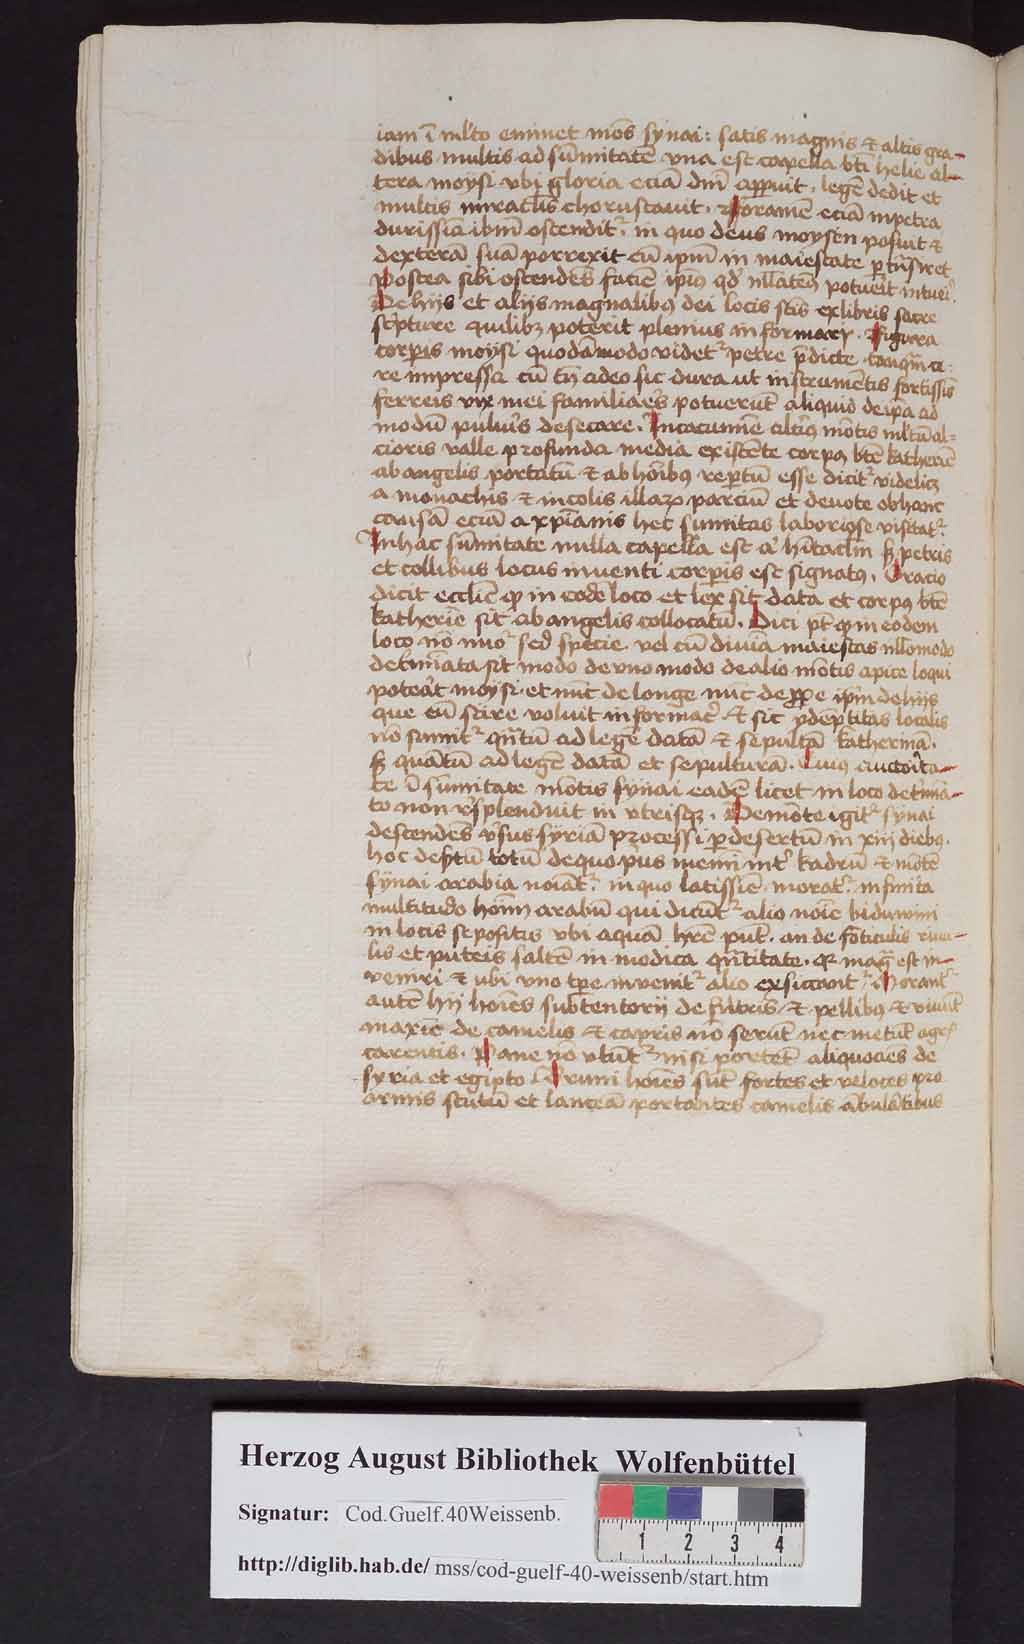 iam ī mlto eminet mōs synai: satis magnis et altis gra-
dibus multis ad sūmitatē vna est capella bti helie al-
tera moysi vbi gloria eciā dnī apparuit. legē dedit et
multis miraclis choruscauit. Foramē eciā in petra
durissīa ibm̄ ostendit᷑ in quo deus moysen posuit et
dexterā suā porrexit cū ipm̄ in maiestate pertrāsiret
Postea sibi ostendēs faciē ipius qd nllatenus potuerit intueri.
De hijs et alijs magnalibus dei locis scis ex libris sacre
scripture quilibz poterit plenius informari. Figura
corpis moysi quodāmodo videt᷑ petre p̄dicte tanqm̄ ce-
re impressa cū tn̄ adeo sic dura ut instrumētis fortissis
ferreis vix mei familiares potuerūt aliquid de ipa ad
modū pulueris desecare. In cacumine alterius mōtis mltū al-
cioris valle profunda media existēte corpus bte katherīe
ab angelis portatū et ab hoībus repertū esse dicit᷑ videlicz
a monachis et incolis illarum parciū et deuote ob hanc
causā eciā a xpīanis hec sumitas laboriose visitat᷑.
In hac sūmitate nulla capella est aut hitaclm sz petris
et collibus locus inuenti corpis est signatus. Oracio
dicit ecclie quod in eodē loco et lex sit data et corpus bte
katherīe sit ab angelis collocatū. Dici pt quod in eodem
loco nō nūo sed specie vel cū diuīa maiestas nllomodo
determīata sit modo de vno modo de alio mōtis apice loqui
poterat moysi et nūc de longe nūc de prope ipm̄ de hijs
que eū scire voluit informare et sic ydemptitas localis
nō sumit᷑ qntū ad legē datā et sepultā katherinā.
sz quātū ad legē datā et sepulturā. Cuius auctorita-
te ī sūmitate mōtis synai eadē licet in loco determīa-
to non resplenduit in vtrisqz. De mōte igit᷑ synai
descendēs versus syriā processi per desertū in xiij diebus.
hoc desertū totū de quo prius memini inter kadrū et mōtē
synai arabia noiāt᷑. in quo latissīe morat᷑ infinita
multitudo hoīm arabū qui dicūt᷑ alio noīe biduwini
in locis sepositis vbi aquā hrē pūt. an de fōticulis riuu-
lis et puteis saltē in modica qntitate. quia magna est in-
ueniri et ubi vno tpre inuenit᷑ alio exsiccatur. Morant᷑
autē hij hoīes sub tentorij de filtris et pellibus et viuūt
maxīe de camelis et capris nō serūt nec metūt agros
carentis. Pane nō vtūt᷑ nisi portetē aliquocies de
syria et egipto. Bruni hoīes sūt fortes et veloces pro
armis scutū et lanceā portantes camelis ābulātibus
Herzog August Bibliothek Wolfenbüttel
Signatur: Cod.Guelf.40Weissenb.
http://diglib.hab.de/ mss/cod-guelf-40-weissenb/start.htm
1 2 3 4